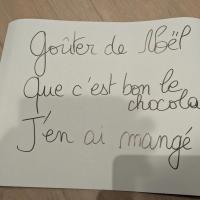 Goûter de Noël
Que c'est bon le
chocola
J'en ai mangé